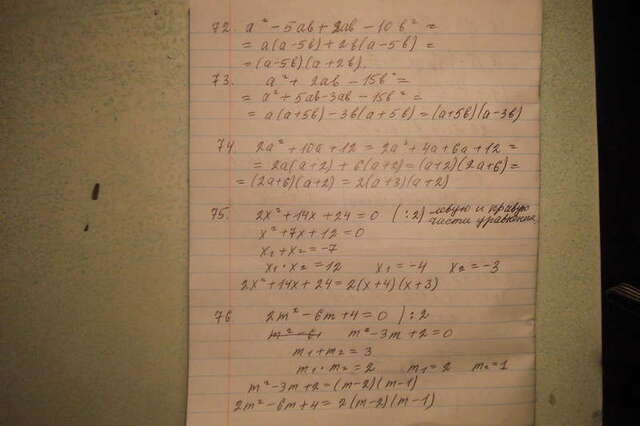 72. a² - 5ab + 2ab - 10b² =
= a(a-5b) + 2b(a-5b) =
= (a-5b)(a+2b).
73. a² + 2ab - 15b² =
= a² + 5ab - 3ab - 15b² =
= a(a+5b) - 3b(a+5b) = (a+5b)(a-3b)
74. 2a² + 10a + 12 = 2a² + 4a + 6a + 12 =
= 2a(a+2) + 6(a+2) = (a+2)(2a+6) =
= (2a+6)(a+2) = 2(a+3)(a+2)
75. 2x² + 14x + 24 = 0 (:2) левую и правую
части уравнения
x² + 7x + 12 = 0
x₁ + x₂ = -7
x₁ · x₂ = 12 x₁ = -4 x₂ = -3
2x² + 14x + 24 = 2(x+4)(x+3)
76 2m² - 6m + 4 = 0 | :2
m² - 3m + 2 = 0
m₁ + m₂ = 3
m₁ · m₂ = 2 m₁ = 2 m₂ = 1
m² - 3m + 2 = (m-2)(m-1)
2m² - 6m + 4 = 2(m-2)(m-1)